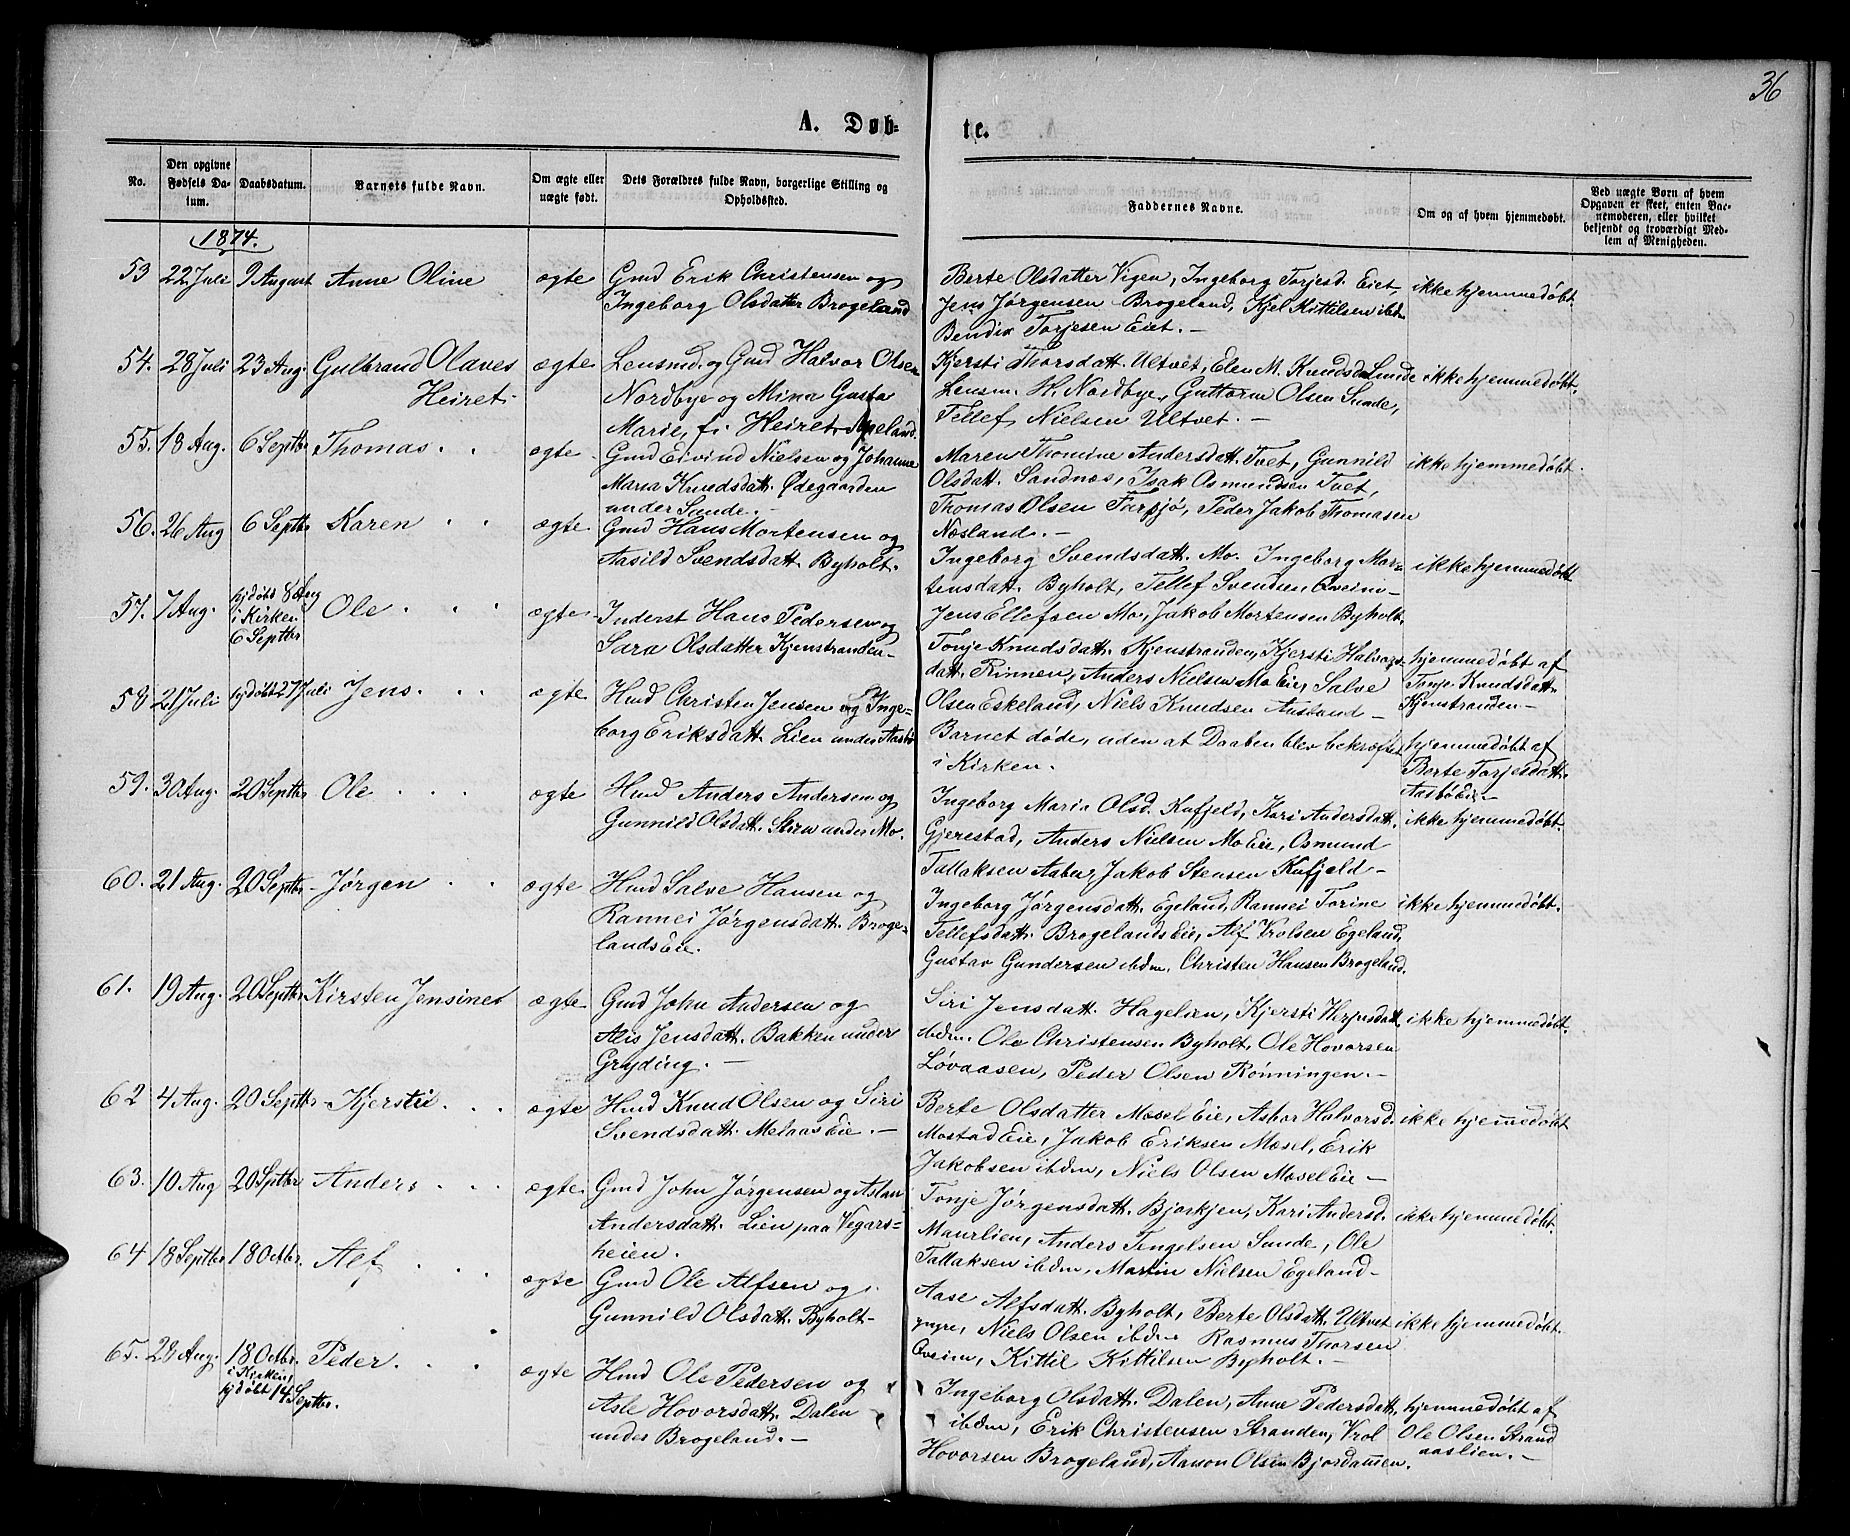 36
A. Døb-
te.
No.
Den opgivne Fødsels Da-tum.
Daabsdatum.
Barnets fulde Navn.
Om ægte eller uægte født.
Dets Forældres fulde Navn, borgerlige Stilling og Opholdsted.
Faddernes Navne.
Om og af hvem hjemmedøbt.
Ved uægte Børn af hvem Opgaven er skeet, enten Bar-nemoderen, eller hvilket bekjendt og troværdigt Med-lem af Menigheden.
1874.
53 22 Juli 9 August Anne Oline ægte Gmd Erik Christensen og
Ingeborg Olsdatter Brogeland
Berte Olsdatter Vigen, Ingeborg Torjesd. Eiet,
Jens Jørgensen Brogeland, Kjel Kittilsen ibdm
Bendix Torjesen Eiet. –
ikke hjemmedøbt
54. 28 Juli 23 Aug. Gulbrand Olaves
Heiret.
ægte Lensmd. og Gmd Halvor Olsen
Nordbye og Mina Gusta
Marie, f. Heiret. Apeland.
Kjersti Thorsdatt. Ultvet, Elen M. Knudsd. Sunde
Lensm. H. Nordbye, Guttorm Olsen Sunde,
Tellef Nielsen Ultvet. –
ikke hjemmedøbt.
55. 18 Aug. 6 Septbr Thomas. ægte. Gmd Eivind Nielsen og Johanne
Maria Knudsdatt. Ødegaarden
under Sunde. –
Maren Thomine Andersdatt. Tvet, Gunnild
Olsdatt. Sandnæs, Isak Osmundsen Tvet,
Thomas Olsen Torsjø, Peder Jakob Thomasen
Næsland. –
ikke hjemmedøbt.
56. 26 Aug 6 Septbr Karen ægte Gmd Hans Mortensen og
Aasild Svendsdatt. Byholt.
Ingeborg Svendsdatt. Mo. Ingeborg Mar-
tensdatt. Byholt, Tellef Svendsen Qveim
Jens Ellefsen Mo, Jakob Mortensen Byholt.
ikke hjemmedøbt
57. 7 Aug. hjdøbt 8 Aug
i Kirken
6 Septbr
Ole ægte Inderst Hans Pedersen og
Sara Olsdatter Kjenstranden
Tonje Knudsdatt. Kjenstranden, Kjersti Halvors-
datt. Rinnen, Anders Nielsen Mo Eie, Salve
Olsen Eskeland, Niels Knudsen Ausland –
hjemmedøbt af
Tonje Knudsdatt.
Kjenstranden –
58. 21 Juli hjdøbt 27 Juli Jens. ægte Hmd Christen Jensen og Inge-
borg Eriksdatt. Lien under Aasbø
Barnet døde, uden at Daaben blev bekræftet
i Kirken.
hjemmedøbt af
Berte Torjesdatt.
Aasbø Eie –
59. 30 Aug. 20 Septbr Ole ægte Hmd Anders Andersen og
Gunnild Olsdatt. Steen under Mo.
Ingeborg Marie Olsd. Kufjeld, Kari Andersdatt.
Gjerestad, Anders Nielsen Mo Eie, Osmund
Tallaksen Aabø, Jakob Stensen Kufjeld –
ikke hjemmedøbt.
60. 21 Aug. 20 Septbr Jørgen ægte Hmd Salve Hansen og
Rannei Jørgensdatt. Broge-
lands Eie.
Ingeborg Jørgensdatt. Egeland, Rannei Torine
Tellefsdatt. Brogelands Eie, Alf Vrolsen Egeland,
Gustav Gundersen ibdm. Christen Hansen Brogeland.
ikke hjemmedøbt.
61. 19 Aug. 20 Septbr Kirsten Jensinet ægte Gmd John Andersen og
Alis Jensdatt. Bakken under
Gryding. –
Siri Jensdatt. Hagelien, Kjersti datt
ibdm. Ole Christensen Byholt, Ole Hovorsen
Løvaasen, Peder Olsen Rønningen. –
ikke hjemmedøbt.
62 4 Aug. 20 Septbr Kjersti ægte Hmd Knud Olsen og Siri
Svendsdatt. Melaas Eie. –
Berte Olsdatter Mosel Eie, Asbør Halvorsd.
Mostad Eie, Jakob Eriksen Mosel, Erik
Jakobsen ibdm, Niels Olsen Mosel Eie –
ikke hjemmedøbt
63. 10 Aug 20 Septbr Anders ægte Gmd John Jørgensen og Aslau
Andersdatt. Lien paa Vegars-
heien.
Tonje Jørgensdatt. Bjorkjen, Kari Andersd.
Maurlien, Anders Tengelsen Sunde, Ole
Tallaksen ibdm, Martin Nielsen Egeland –
ikke hjemmedøbt.
64 18 Septbr 18 Octbr. Alf ægte Gmd Ole Alfsen og
Gunnild Olsdatt. Byholt –
Aase Alfsdatt. Byholt, Berte Olsdatt. Ultvet
yngre, Niels Olsen ibdm Rasmus Thorsen
Qveim, Kittil Kittilsen Byholt. –
ikke hjemmedøbt.
65. 28 Aug. 18 Octbr.
i Kirken,
hjdøbt 14 Septbr.
Peder. ægte Hmd Ole Pedersen og
Asle Hovorsdatt. Dalen
under Brogeland. –
Ingeborg Olsdatt. Dalen, Anne Pedersdatt,
ibdm, Erik Christensen Stranden, Vrol
Hovorsen Brogeland, Aanon Olsen Bjordammen.
hjemmedøbt af
Ole Olsen Strand
aaslien. –